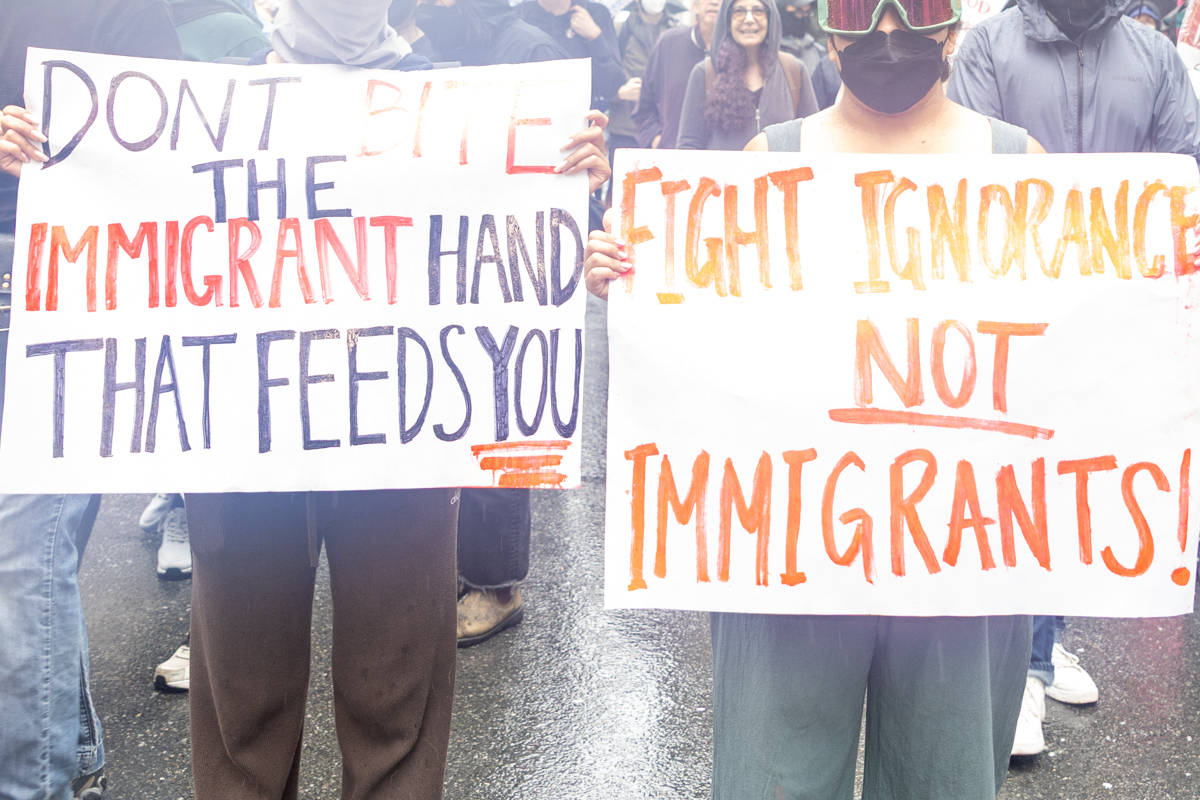 DONT BITE
THE
IMMIGRANT HAND
THAT FEEDS YOU
FIGHT IGNORANCE
NOT
IMMIGRANTS!